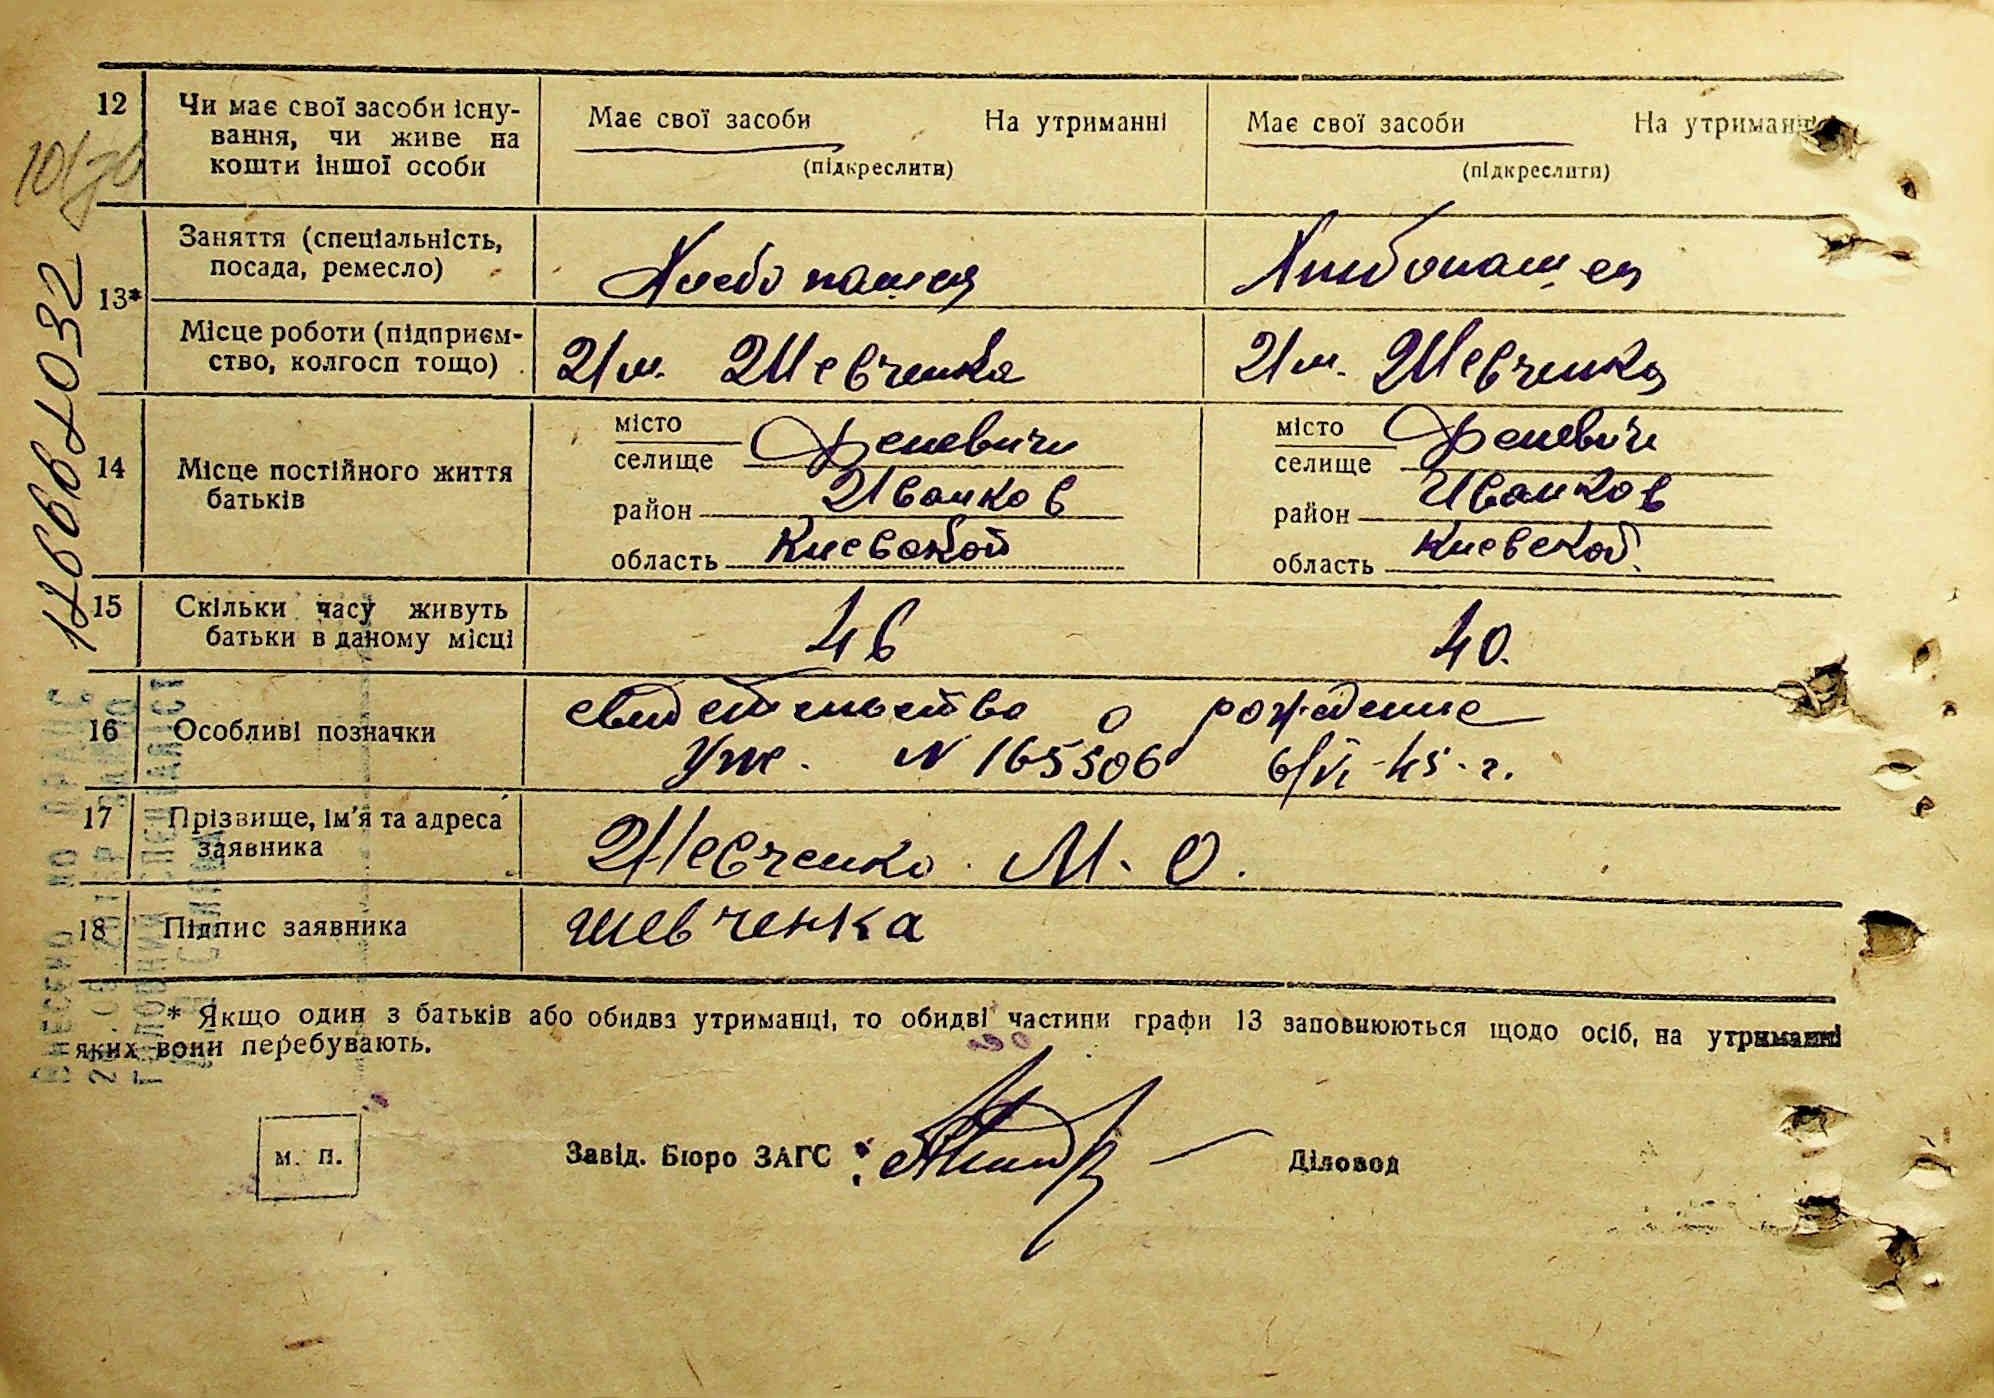 12
Чи має свої засоби існу-
вання, чи живе на
кошти іншої особи
Має свої засоби На утриманні
(підкреслити)
Має свої засоби На утриманні
(підкреслити)
13*
Заняття (спеціальність,
посада, ремесло)
Хлебопашец
Хлебопашец
Місце роботи (підприєм-
ство, колгосп тощо)
Им. Шевченка
Им. Шевченка
14
Місце постійного життя
батьків
місто
селище Феневичи
район Иванков
область Киевской
місто
селище Феневичи
район Иванков
область Киевской
15
Скільки часу живуть
батьки в даному місці
46
40.
16
Особливі позначки
свидетельство о рождение
N 165506 6/VI-45-г.
17
Прізвище, ім'я та адреса
заявника
Шевченко М. О.
18
Підпис заявника
шевченка
* Якщо один з батьків або обидва утриманці, то обидві частини графи 13 заповнюються щодо осіб, на утриманні
яких вони перебувають.
м. п.
Завід. Бюро ЗАГС
Діловод
ВНЕСЕНО ДО ДРАЦС